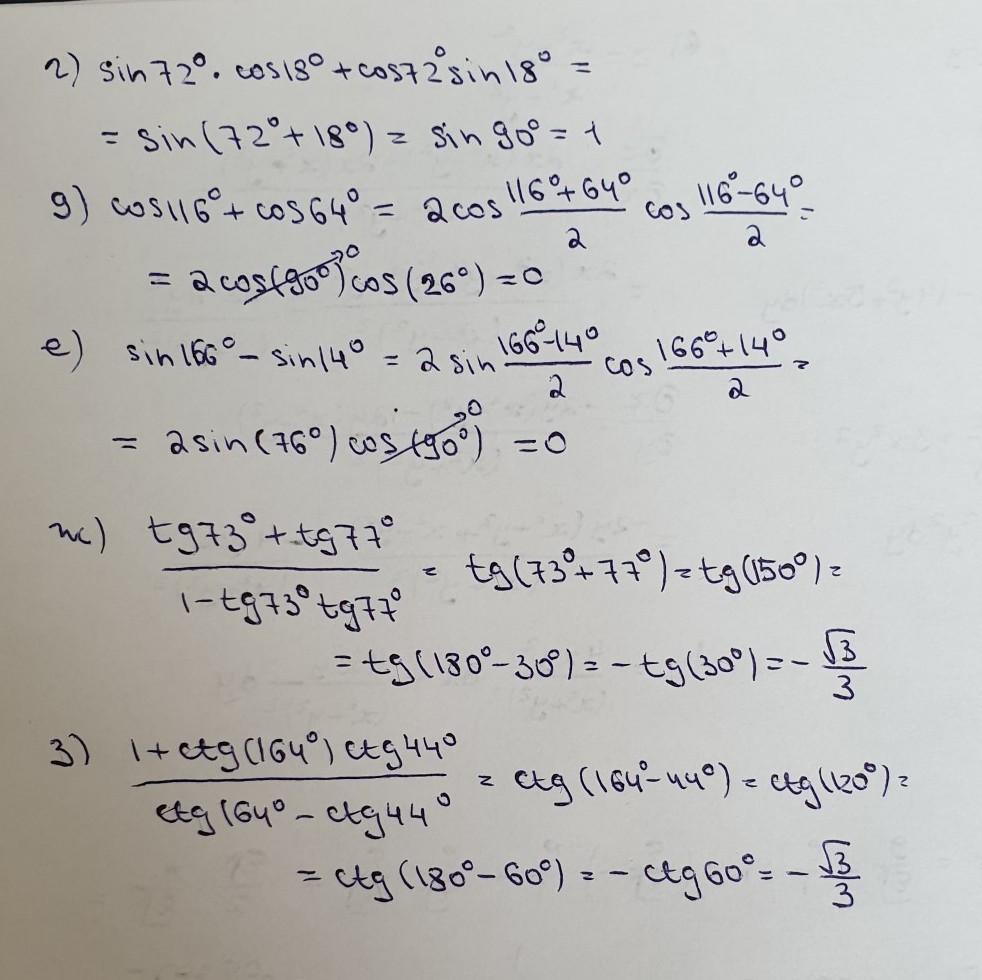 г) sin72°·cos18°+cos72°sin18° =
= sin(72°+18°) = sin 90° = 1
g) cos116°+cos64° = 2cos (116°+64°)/2 cos (116°-64°)/2 =
= 2cos(90°)→0 cos(26°) = 0
e) sin166° - sin14° = 2 sin (166°-14°)/2 cos (166°+14°)/2 =
= 2sin(76°) cos(90°)→0 = 0
ж) (tg73°+tg77°)/(1-tg73°tg77°) = tg(73°+77°) = tg(150°) =
= tg(180°-30°) = -tg(30°) = -√3/3
з) (1+ctg(164°)ctg44°)/(ctg164°-ctg44°) = ctg(164°-44°) = ctg(120°) =
= ctg(180°-60°) = -ctg60° = -√3/3